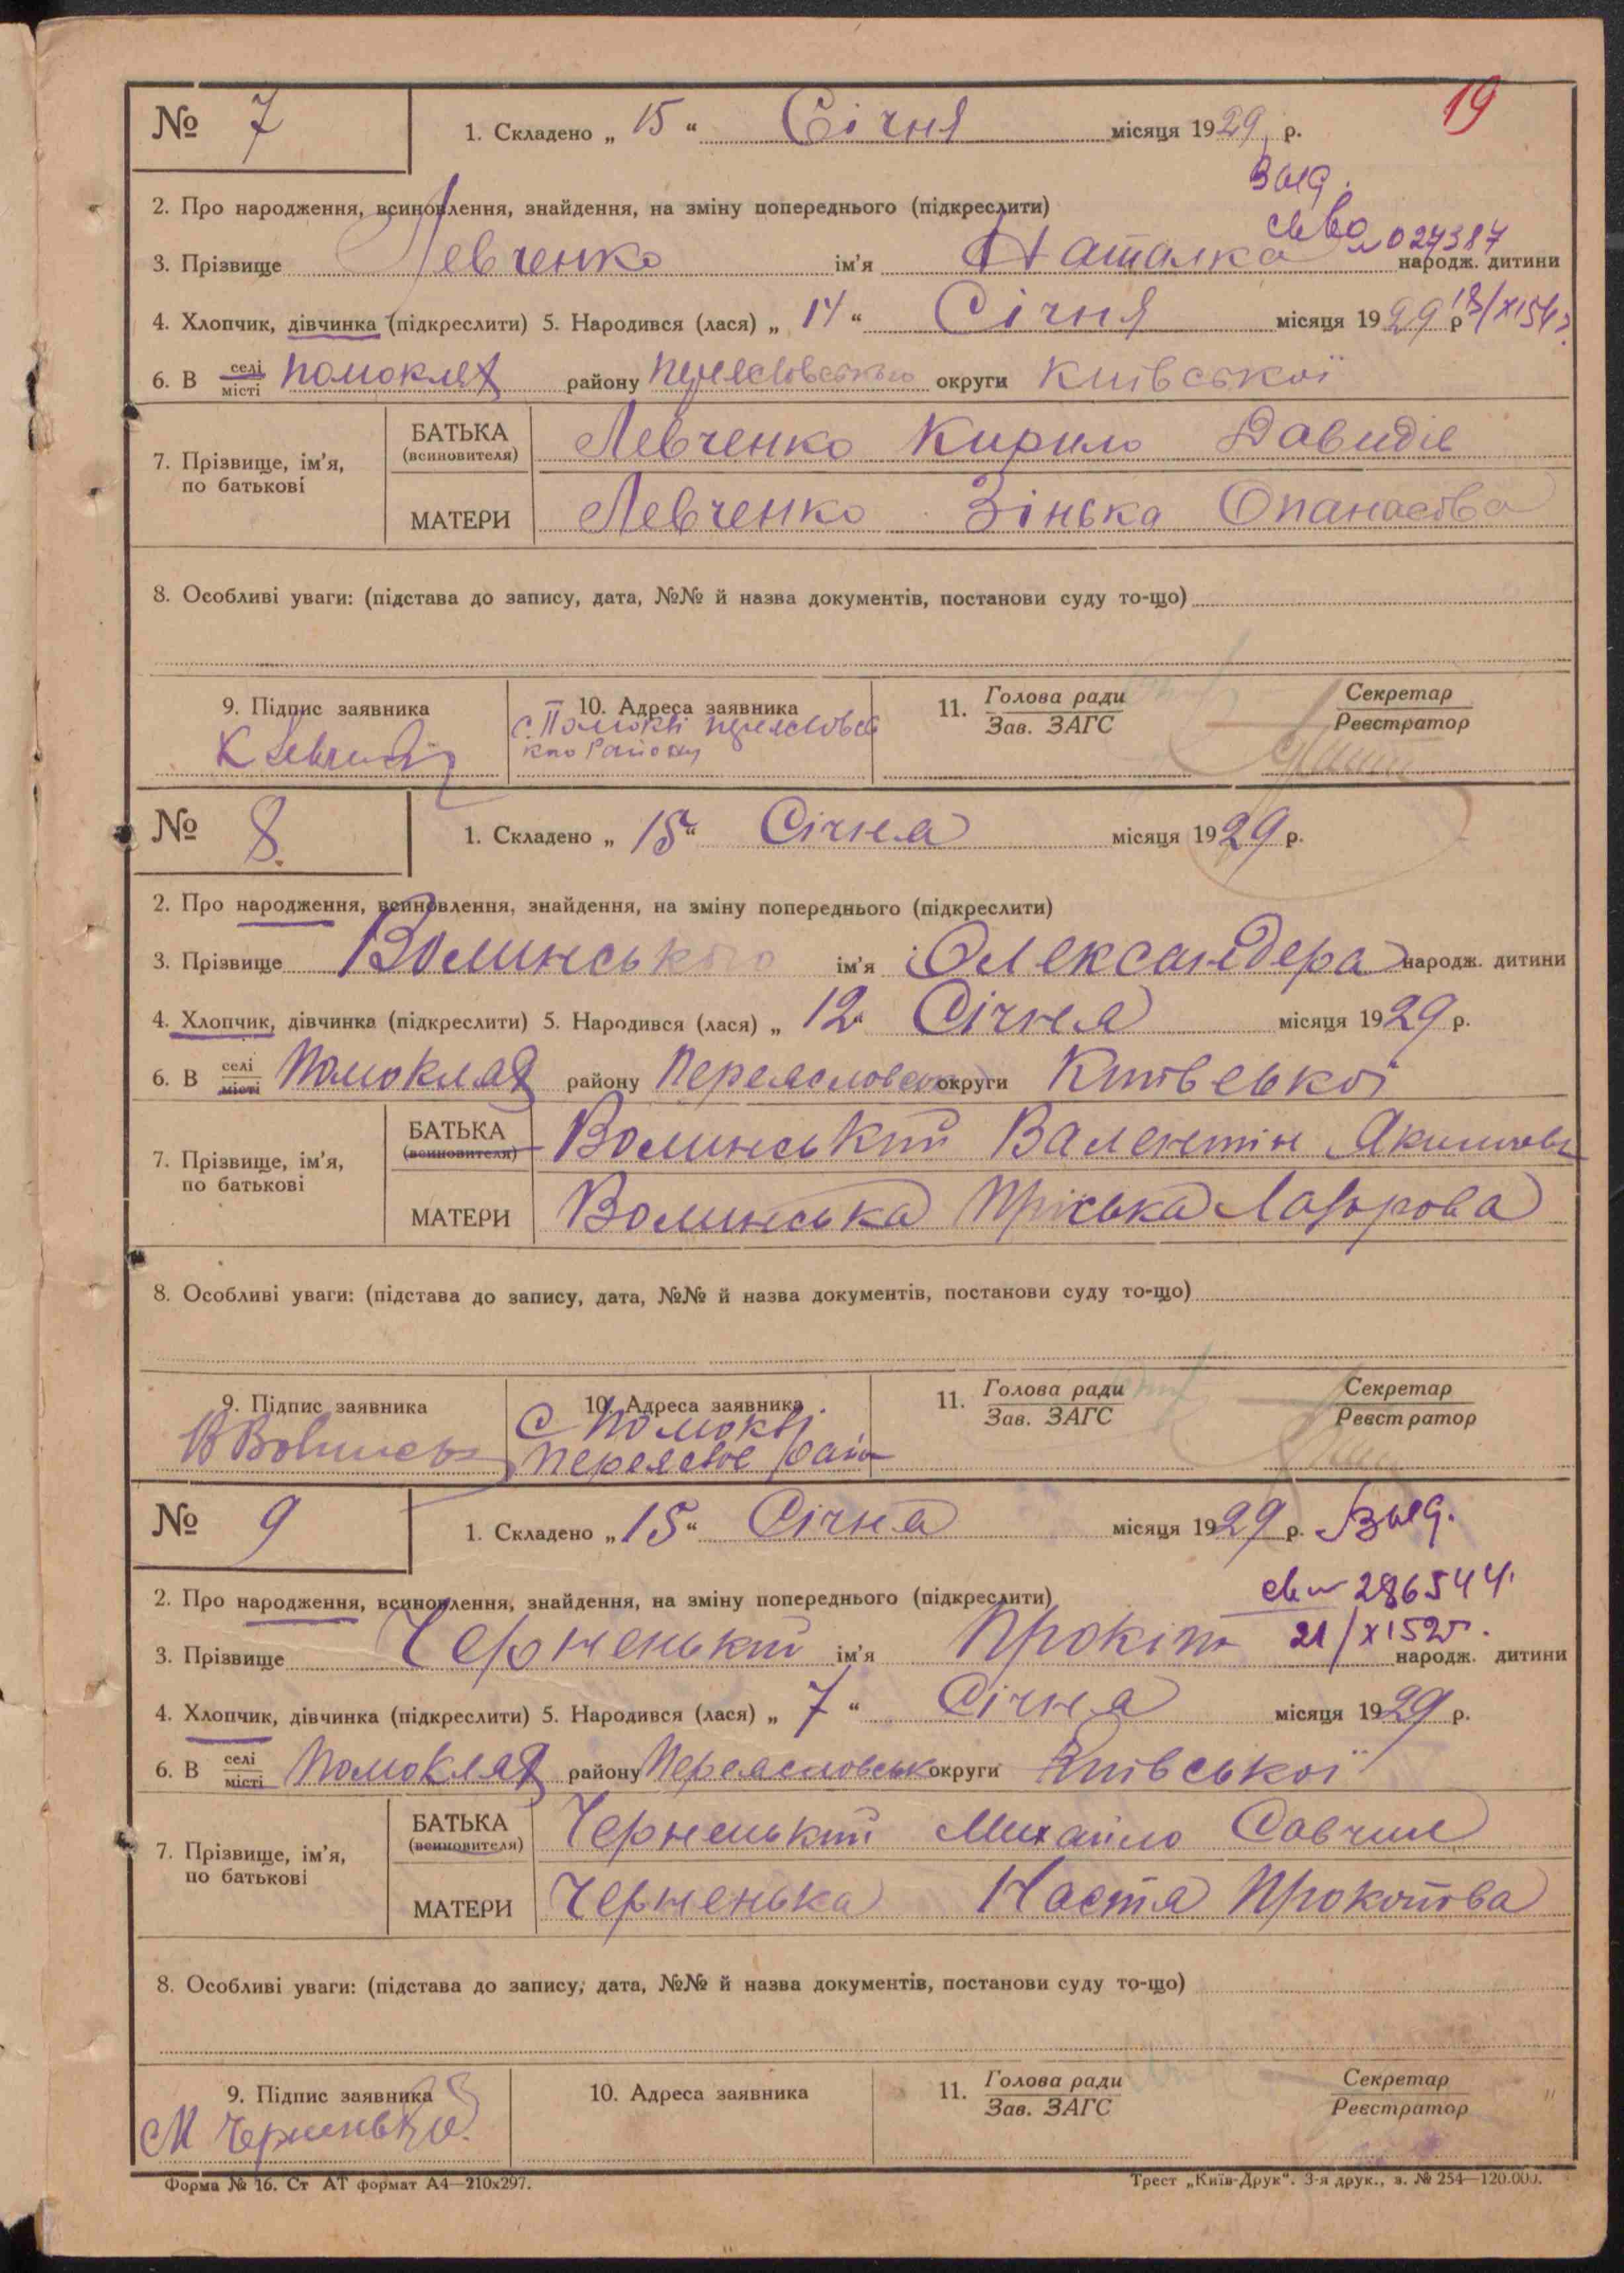 19
№ 7 1. Складено „ 15 “ Січня місяця 1929 р.
Выд.
2. Про народження, всиновлення, знайдення, на зміну попереднього (підкреслити)
027387
3. Прізвище Левченко ім'я Наталка народж. дитини
4. Хлопчик, дівчинка (підкреслити) 5. Народився (лася) „ 14 “ Січня місяця 1929 р
6. В селі/місті Помоклях району округи Київської
7. Прізвище, ім'я, по батькові
БАТЬКА (всиновителя) Левченко Кирило Давидів
МАТЕРИ Левченко Зінька Опанасова
8. Особливі уваги: (підстава до запису, дата, №№ й назва документів, постанови суду то-що)
9. Підпис заявника 10. Адреса заявника 11. Голова ради/Зав. ЗАГС Секретар/Реєстратор
с. Помоклі
району
№ 8. 1. Складено „ 15 “ Січня місяця 1929 р.
2. Про народження, всиновлення, знайдення, на зміну попереднього (підкреслити)
3. Прізвище Волинського ім'я Олександера народж. дитини
4. Хлопчик, дівчинка (підкреслити) 5. Народився (лася) „ 12 “ Січня місяця 1929 р.
6. В селі/місті Помоклях району округи Київської
7. Прізвище, ім'я, по батькові
БАТЬКА (всиновителя) Волинський Валентін
МАТЕРИ Волинська Пріська
8. Особливі уваги: (підстава до запису, дата, №№ й назва документів, постанови суду то-що)
9. Підпис заявника 10. Адреса заявника 11. Голова ради/Зав. ЗАГС Секретар/Реєстратор
с Помоклі
№ 9 1. Складено „ 15 “ Січня місяця 1929 р. Выд.
2. Про народження, всиновлення, знайдення, на зміну попереднього (підкреслити)
286544
3. Прізвище Черненький ім'я Прокіп народж. дитини
4. Хлопчик, дівчинка (підкреслити) 5. Народився (лася) „ 7 “ Січня місяця 1929 р.
6. В селі/місті Помоклях району Переясловськ округи Київської
7. Прізвище, ім'я, по батькові
БАТЬКА (всиновителя) Черненький Михайло
МАТЕРИ Черненька Настя Прокопова
8. Особливі уваги: (підстава до запису, дата, №№ й назва документів, постанови суду то-що)
9. Підпис заявника 10. Адреса заявника 11. Голова ради/Зав. ЗАГС Секретар/Реєстратор
М Черненький
Форма № 16. Ст АТ формат А4—210x297. Трест „Київ-Друк“. 3-я друк., з. № 254—120.000.